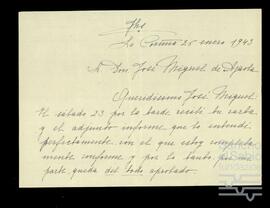 Jhs
La Coruña 25 enero 1943
A Don José Miguel de
Queridísimo José Miguel:
El sábado 23 por la tarde recibí tu carta
y el adjunto informe que lo entendí
perfectamente con el que estoy completa
mente conforme y por lo tanto por mi
parte queda del todo aprobado.